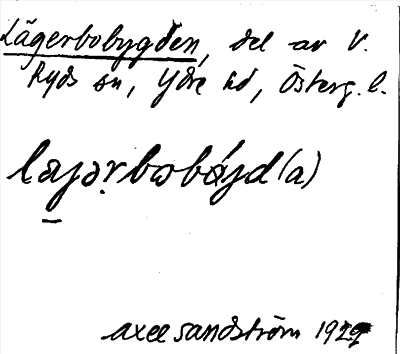 Lägerbobygden, del av V.
Ryds sn, Ydre hd, Österg. l.
lajərbωbájd(a)
Axel Sandström 1929